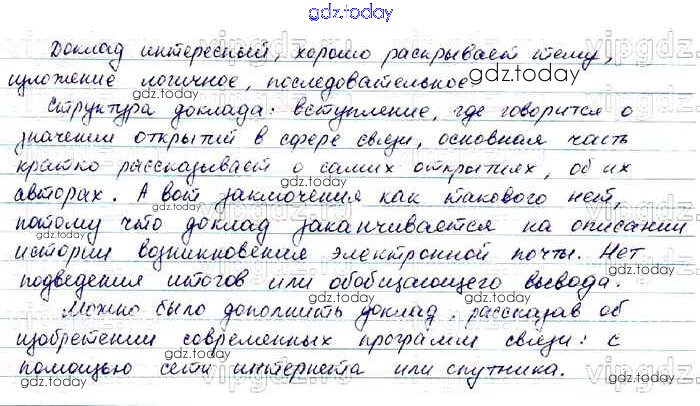 gdz.today
Доклад интересный, хорошо раскрывает тему,
gdz.today
изложение логичное, последовательное.
gdz.today
Структура доклада: вступление, где говорится о
gdz.today
значении открытий в сфере связи, основная часть
gdz.today
кратко рассказывает о самих открытиях, об их
gdz.today
авторах. А вот заключения как такового нет,
gdz.today
потому что доклад заканчивается на описании
gdz.today
истории возникновения электронной почты. Нет
gdz.today
подведения итогов или обобщающего вывода.
gdz.today
Можно было дополнить доклад, рассказав об
gdz.today
изобретении современных программ связи: с
gdz.today
помощью сети интернета или спутника.
gdz.today